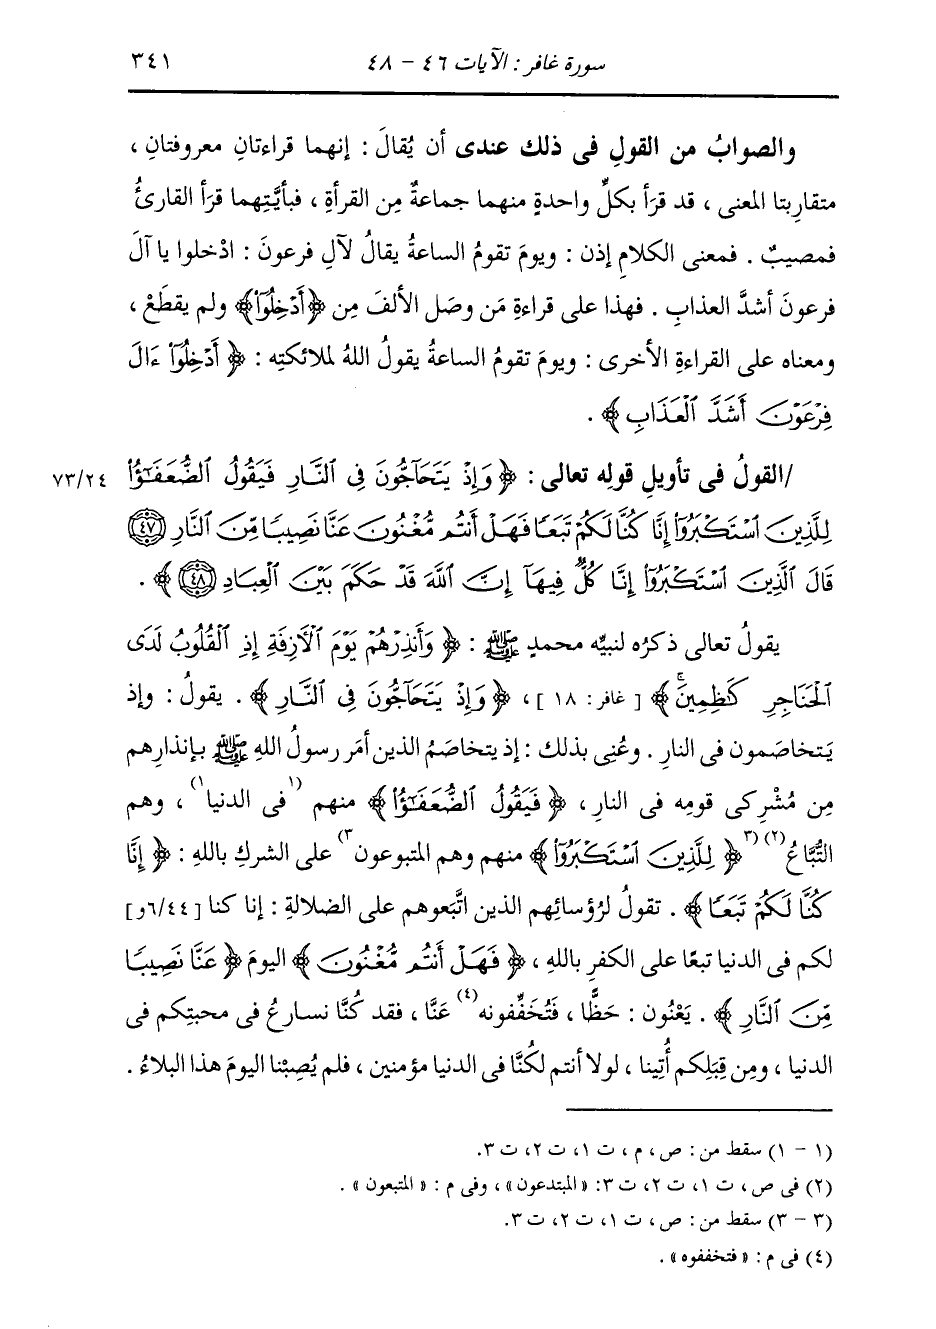 سورة غافر : الآيات ٤٦ - ٤٨ ٣٤١
والصوابُ من القولِ فى ذلك عندى أن يُقالَ : إنهما قراءتانِ معروفتانِ ،
متقاربتا المعنى ، قد قرَأ بكلِّ واحدةٍ منهما جماعةٌ مِن القرأةِ ، فبأيَّتِهما قرَأ القارئُ
فمصيبٌ . فمعنى الكلامِ إذن : ويومَ تقومُ الساعةُ يقالُ لآلِ فرعونَ : ادْخلوا يا آلَ
فرعونَ أشدَّ العذابِ . فهذا على قراءةِ مَن وصَل الألفَ مِن ﴿أَدْخِلُوٓا﴾ ولم يقطَعْ ،
ومعناه على القراءةِ الأخرى : ويومَ تقومُ الساعةُ يقولُ اللهُ لملائكتِه : ﴿ أَدْخِلُوٓا ءَالَ
فِرْعَوْنَ أَشَدَّ ٱلْعَذَابِ ﴾ .
/القولُ فى تأويلِ قولِه تعالى : ﴿ وَإِذْ يَتَحَآجُّونَ فِى ٱلنَّارِ فَيَقُولُ ٱلضُّعَفَـٰٓؤُا۟ ٧٣/٢٤
لِلَّذِينَ ٱسْتَكْبَرُوٓا۟ إِنَّا كُنَّا لَكُمْ تَبَعًا فَهَلْ أَنتُم مُّغْنُونَ عَنَّا نَصِيبًا مِّنَ ٱلنَّارِ ٤٧
قَالَ ٱلَّذِينَ ٱسْتَكْبَرُوٓا۟ إِنَّا كُلٌّ فِيهَآ إِنَّ ٱللَّهَ قَدْ حَكَمَ بَيْنَ ٱلْعِبَادِ ٤٨ ﴾ .
يقولُ تعالى ذكرُه لنبيِّه محمدٍ ﷺ : ﴿ وَأَنذِرْهُمْ يَوْمَ ٱلْآزِفَةِ إِذِ ٱلْقُلُوبُ لَدَى
ٱلْحَنَاجِرِ كَـٰظِمِينَۚ ﴾ [ غافر: ١٨ ] ، ﴿ وَإِذْ يَتَحَآجُّونَ فِى ٱلنَّارِ ﴾ . يقولُ : وإذ
يَتخاصَمون فى النارِ . وعُنِى بذلك : إذ يتخاصَمُ الذين أمَر رسولُ اللهِ ﷺ بإنذارِهم
مِن مُشْرِكى قومِه فى النارِ ، ﴿ فَيَقُولُ ٱلضُّعَفَـٰٓؤُا۟ ﴾ منهم (١فى الدنيا١) ، وهم
التُّبَّاعُ(٢) (٣﴿ لِلَّذِينَ ٱسْتَكْبَرُوٓا۟ ﴾ منهم وهم المتبوعون٣) على الشركِ باللهِ : ﴿ إِنَّا
كُنَّا لَكُمْ تَبَعًا ﴾ . تقولُ لرُؤسائِهم الذين اتَّبَعوهم على الضلالةِ : إنا كنا [٦/٤٤و]
لكم فى الدنيا تبعًا على الكفرِ باللهِ ، ﴿ فَهَلْ أَنتُم مُّغْنُونَ ﴾ اليومَ ﴿ عَنَّا نَصِيبًا
مِّنَ ٱلنَّارِ ﴾ . يَعْنُون : حَظًّا ، فَتُخَفِّفونه(٤) عَنَّا ، فقد كُنَّا نسارعُ فى محبتِكم فى
الدنيا ، ومِن قِبَلِكم أُتِينا ، لولا أنتم لكُنَّا فى الدنيا مؤمنين ، فلم يُصِبْنا اليومَ هذا البلاءُ .
(١ - ١) سقط من : ص ، م ، ت ١، ت ٢، ت ٣.
(٢) فى ص ، ت ١، ت ٢، ت ٣: « المبتدعون » ، وفى م : « المتبعون » .
(٣ - ٣) سقط من : ص ، ت ١، ت ٢، ت ٣.
(٤) فى م : « فتخففوه » .